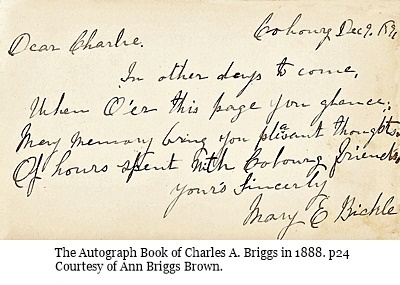 Cobourg Dec 9. 1891
Dear Charlie.
In other days to come,
When O'er this page you glance;
May Memory bring you pleasant thoughts.
Of hours spent With Cobourg friends.
Yours Sincerly
Mary E Bickle
The Autograph Book of Charles A. Briggs in 1888. p24
Courtesy of Ann Briggs Brown.